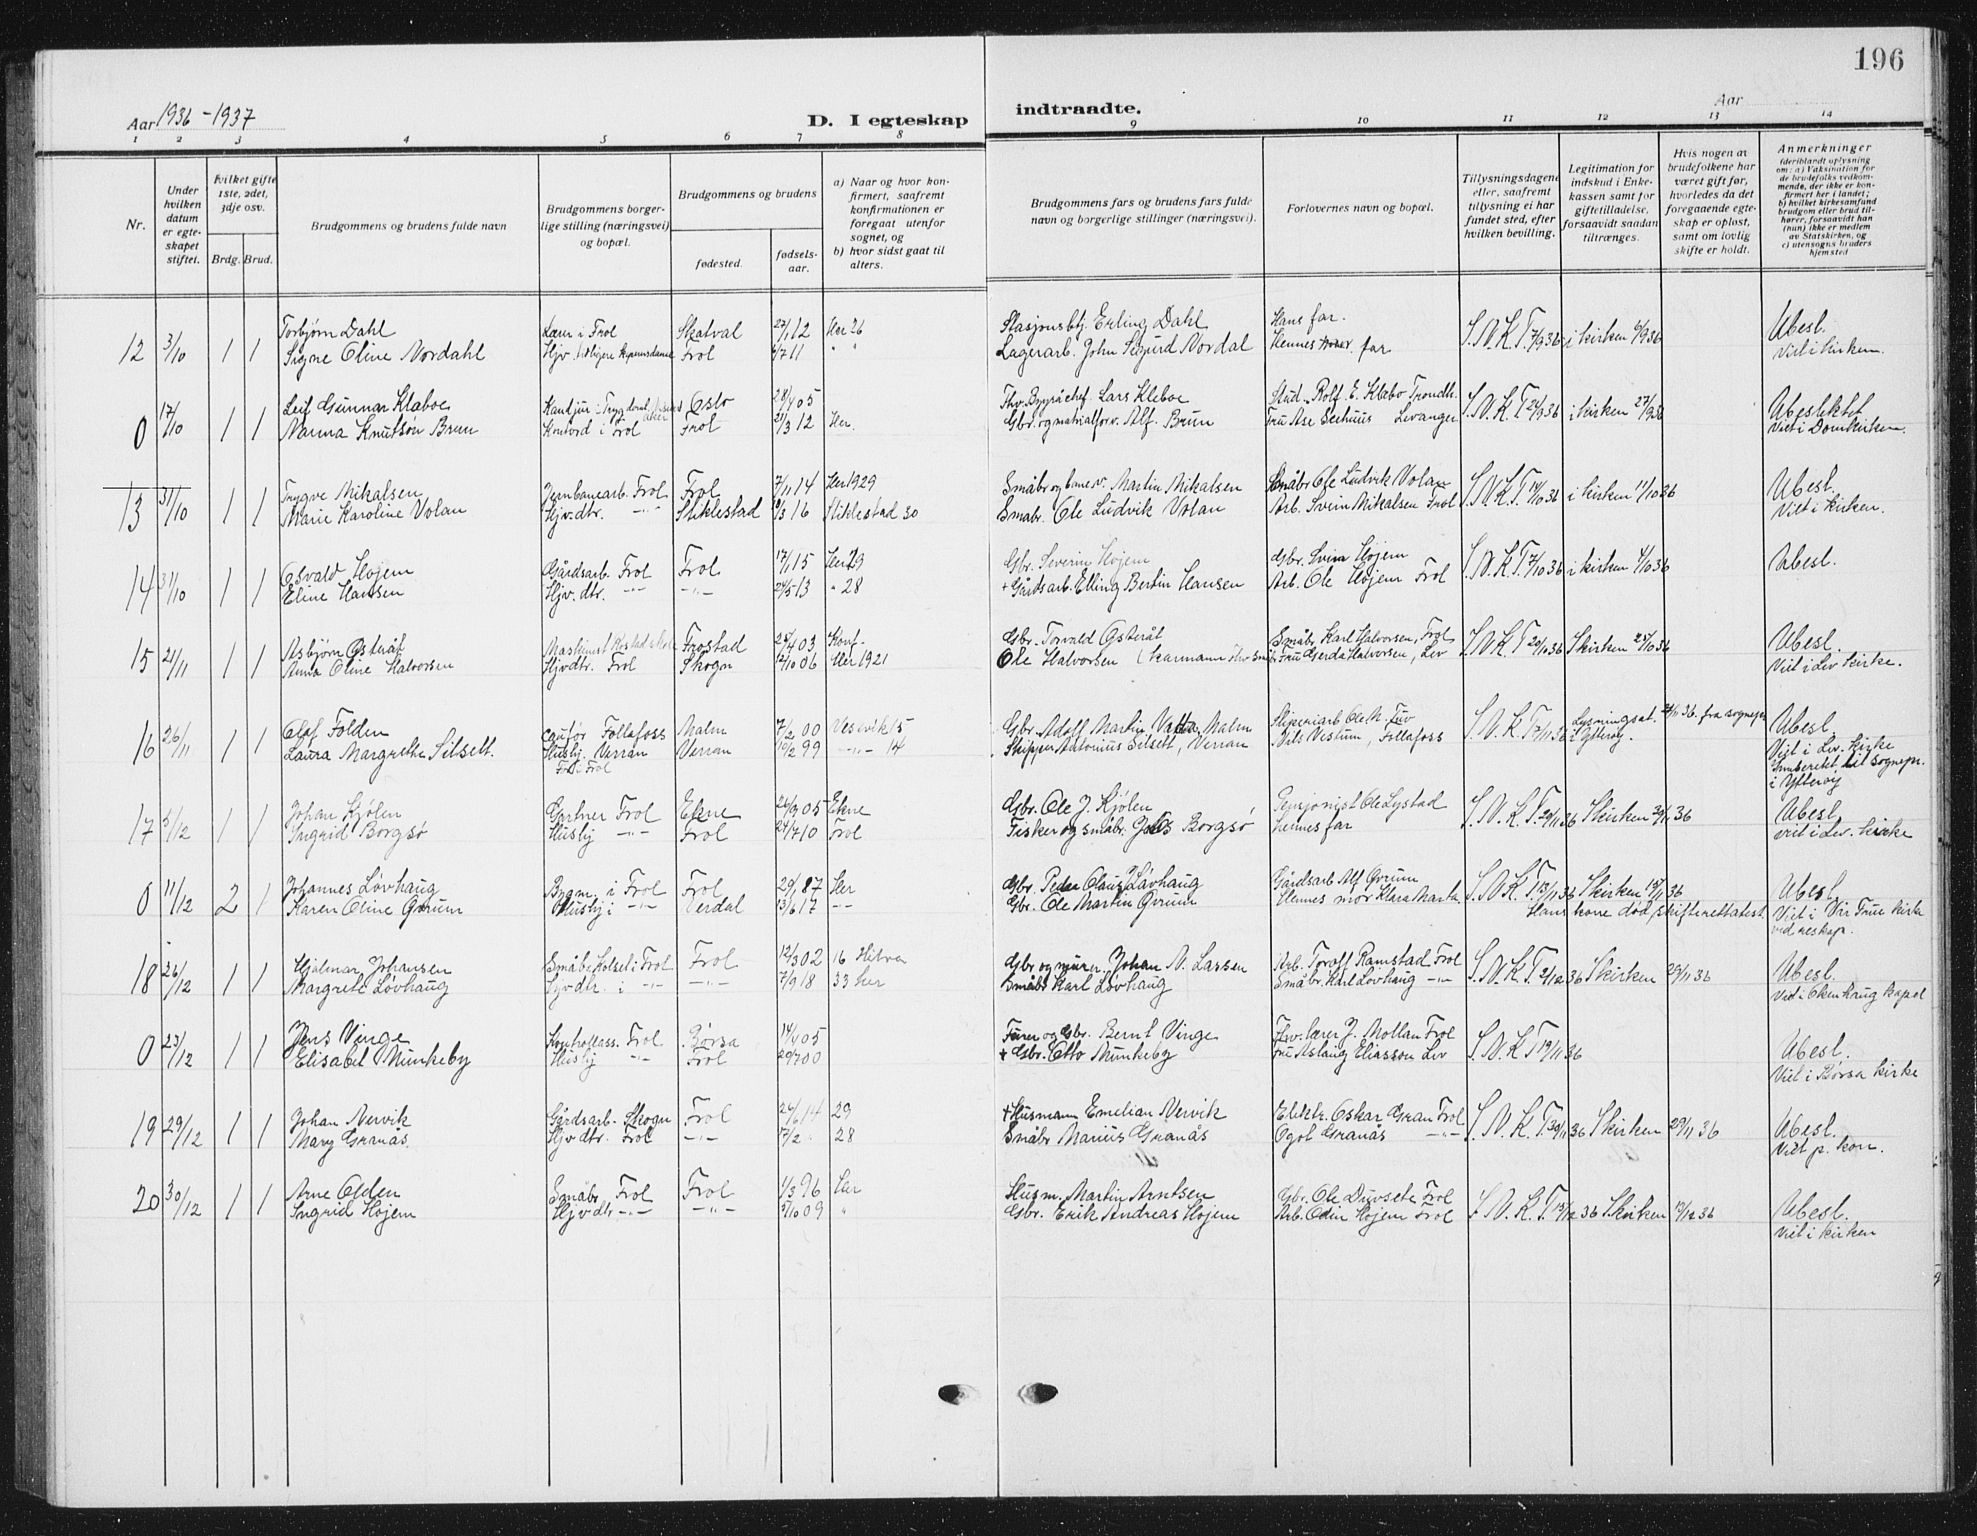 196
Aar 1936-1937
D. I egteskap indtraadte.
Aar
1 2 3 4 5 6 7 8 9 10 11 12 13 14
Nr.
Under hvilken datum er egte-skapet stiftet.
Hvilket gifte 1ste, 2det, 3dje osv.
Brdg. Brud.
Brudgommens og brudens fulde navn
Brudgommens borger-lige stilling (næringsvei) og bopæl.
Brudgommens og brudens
fødested.
fødsels-aar.
a) Naar og hvor kon-firmert, saafremt konfirmationen er foregaat utenfor sognet, og
b) hvor sidst gaat til alters.
Brudgommens fars og brudens fars fulde navn og borgerlige stillinger (næringsvei).
Forlovernes navn og bopæl.
Tillysningsdagene eller, saafremt tillysning ei har fundet sted, efter hvilken bevilling.
Legitimation for indskud i Enke-kassen samt for giftetilladelse, forsaavidt saadan tiltrænges.
Hvis nogen av brudefolkene har været gift før, hvorledes da det foregaaende egte-skap er opløst, samt om lovlig skifte er holdt.
Anmerkninger (deriblandt oplysning om: a) Vaksination for de brudefolks vedkom-mende, der ikke er kon-firmert her i landet; b) hvilket kirkesamfund brudgom eller brud til-hører, forsaavidt han (hun) ikke er medlem av Statskirken, og c) utensogns bruders hjemsted
Torbjørn Dahl Lærer i Frol Skatval 27/1 12 Her 26 Stasjonsbtj. Erling Dahl Hans far. Ubesl.
12 3/10 1 1 Signe Oline Nordahl Frol 4/7 11 " " Lagerarb. John Sigurd Nordal Hennes far S.N.K.T. 7/9 36 i kirken 6/9 36 Viet i kirken.
Leif Gunnar Klæboe Oslo 28/4 05 Lars Klæboe Stud. Rolf. E. Klæbo Trondh. Ubeslektet
0 17/10 1 1 Nanna Knutson Brun Kontord i Frol Frol 21/3 12 Her. Gbr. og matrialforv. Alf. Brun Fru Åse Seehuus Levanger S.N.K.T. 24/9 36 i kirken 27/9 36 Viet i Domkirken.
Trygve Mikalsen Jernbanearb. Frol Frol 7/11 14 Her 1929 Småbr og banev. Martin Mikalsen Småbr Ole Ludvik Volan Ubesl.
13 31/10 1 1 Marie Karoline Volan Hjv. dtr. -"- Stiklestad 16 Stiklestad 30 Småbr. Ole Ludvik Volan Arb. Svein Mikalsen Frol S.N.K.T. 14/10 36 i kirken 11/10 36 Viet i kirken.
Osvald Hojem Gårdsarb. Frol Frol 17/1 15 Her 29 Gbr. Severin Hojem Gbr. Hojem Ubesl.
14 31/10 1 1 Eline Hansen Hjv. dtr. -"- -"- 24/5 13 " 28 + Gårdsarb. Elling Bertin Hansen Arb. Ole Hojem Frol S.N.K.T. 7/10 36 i kirken 4/10 36
Asbjørn Østeråt Frostad 25/4 03 Konf. Gbr. Torvald Østeråt Småbr. Karl Halvorsen, Frol Ubesl.
15 21/11 1 1 Anna Oline Halvorsen Hjv dtr. Frol Skogn 12/10 06 Her 1921 Ole Halvorsen Fru Gerda Halvorsen, Lev S.N.K.T. 20/10 36 I kirken 25/10 36 Viet i Lev kirke.
Olaf Folden Follafoss Malm 7/2 00 15 Gbr. Adolf Martin Malm Sliperiarb Ole M. Lysningsat. 36. fra sognepr. Ubesl.
16 26/11 1 1 Laura Margrethe Silsett. Husbj. Verran Verran 10/2 99 -"- 14 Skipper Antonius Silsett, Verran Nils Vestum, Follafoss S.N.K.T. 7/11 36 i Ytterøy. Viet i Lev. kirke
Frol Innberettet til sognepr.
i Ytterøy
Johan Kjølen Gartner Frol Ekne 26/9 05 Ekne Gbr. Ole J. Kjølen Pensjonist Ole Lystad Ubesl.
17 5/12 1 1 Ingrid Borgsø Husbj -"- Frol 24/7 10 Frol Fisker og småbr. Borgsø Hennes far S.N.K.T. 29/11 36 I kirken 36 viet i Lev. kirke
Johannes Lövhaug i Frol Frol 29/1 87 Her Gbr. Peder Claus Lövhaug Gårdsarb Alf Gvrum Ubesl.
0 11/12 2 1 Karen Oline Gvrum Husbj i -"- 13/6 17 -"- Gbr. Ole Martin Gvrum Hennes mor Klara S.N.K.T. 13/11 36 I kirken 15/11 36 Viet i Vår Frue kirke
Hans kone död, skifterettattest.
Hjalmar Johansen Frol Frol 12/3 02 16 Hitra Gbr og murer. Johan N. Lassen Arb. Toralf Ramstad Frol Ubesl.
18 26/12 1 1 Margrete Lövhaug Hjv dtr. i -"- -"- 7/9 18 33 her Småbr Karl Lövhaug Småbr. Karl Lövhaug -"- S.N.K.T. 2/12 36 I kirken 29/11 36 Viet i Okenhaug kapel
Jens Vinge Kontrollass. Frol Børsa 14/4 05 Gbr. Bernt Vinge lærer J. Mollan Frol Ubesl.
0 23/12 1 1 Elisabet Munkeby Husbj -"- Frol 29/7 00 + Gbr. Otto Munkeby Fru Aslaug Eliasson Lev S.N.K.T. 19/11 36 Viet i Børsa kirke
Johan Nervik Gårdsarb. Skogn Frol 26/6 14 29 + Husmann Emelian Nervik Elektr. Oskar Gran Frol Ubesl.
19 29/12 1 1 Mary Granås Hjv dtr. Frol -"- 17/2 " 28 Småbr Marius Granås Granås -"- S.N.K.T. 30/11 36 I kirken 29/11 36 Viet p. kon.
Arne Olden Småbr Frol Frol 1/3 96 Her Husm. Martin Arntsen Gbr. Ole Duvsete Frol Ubesl.
20 30/12 1 1 Ingrid Hojem Hjv dtr -"- -"- 5/10 09 " Gbr. Erik Andreas Hojem Arb. Odin Hojem Frol S.N.K.T. 15/12 36 I kirken 13/12 36 Viet i kirken